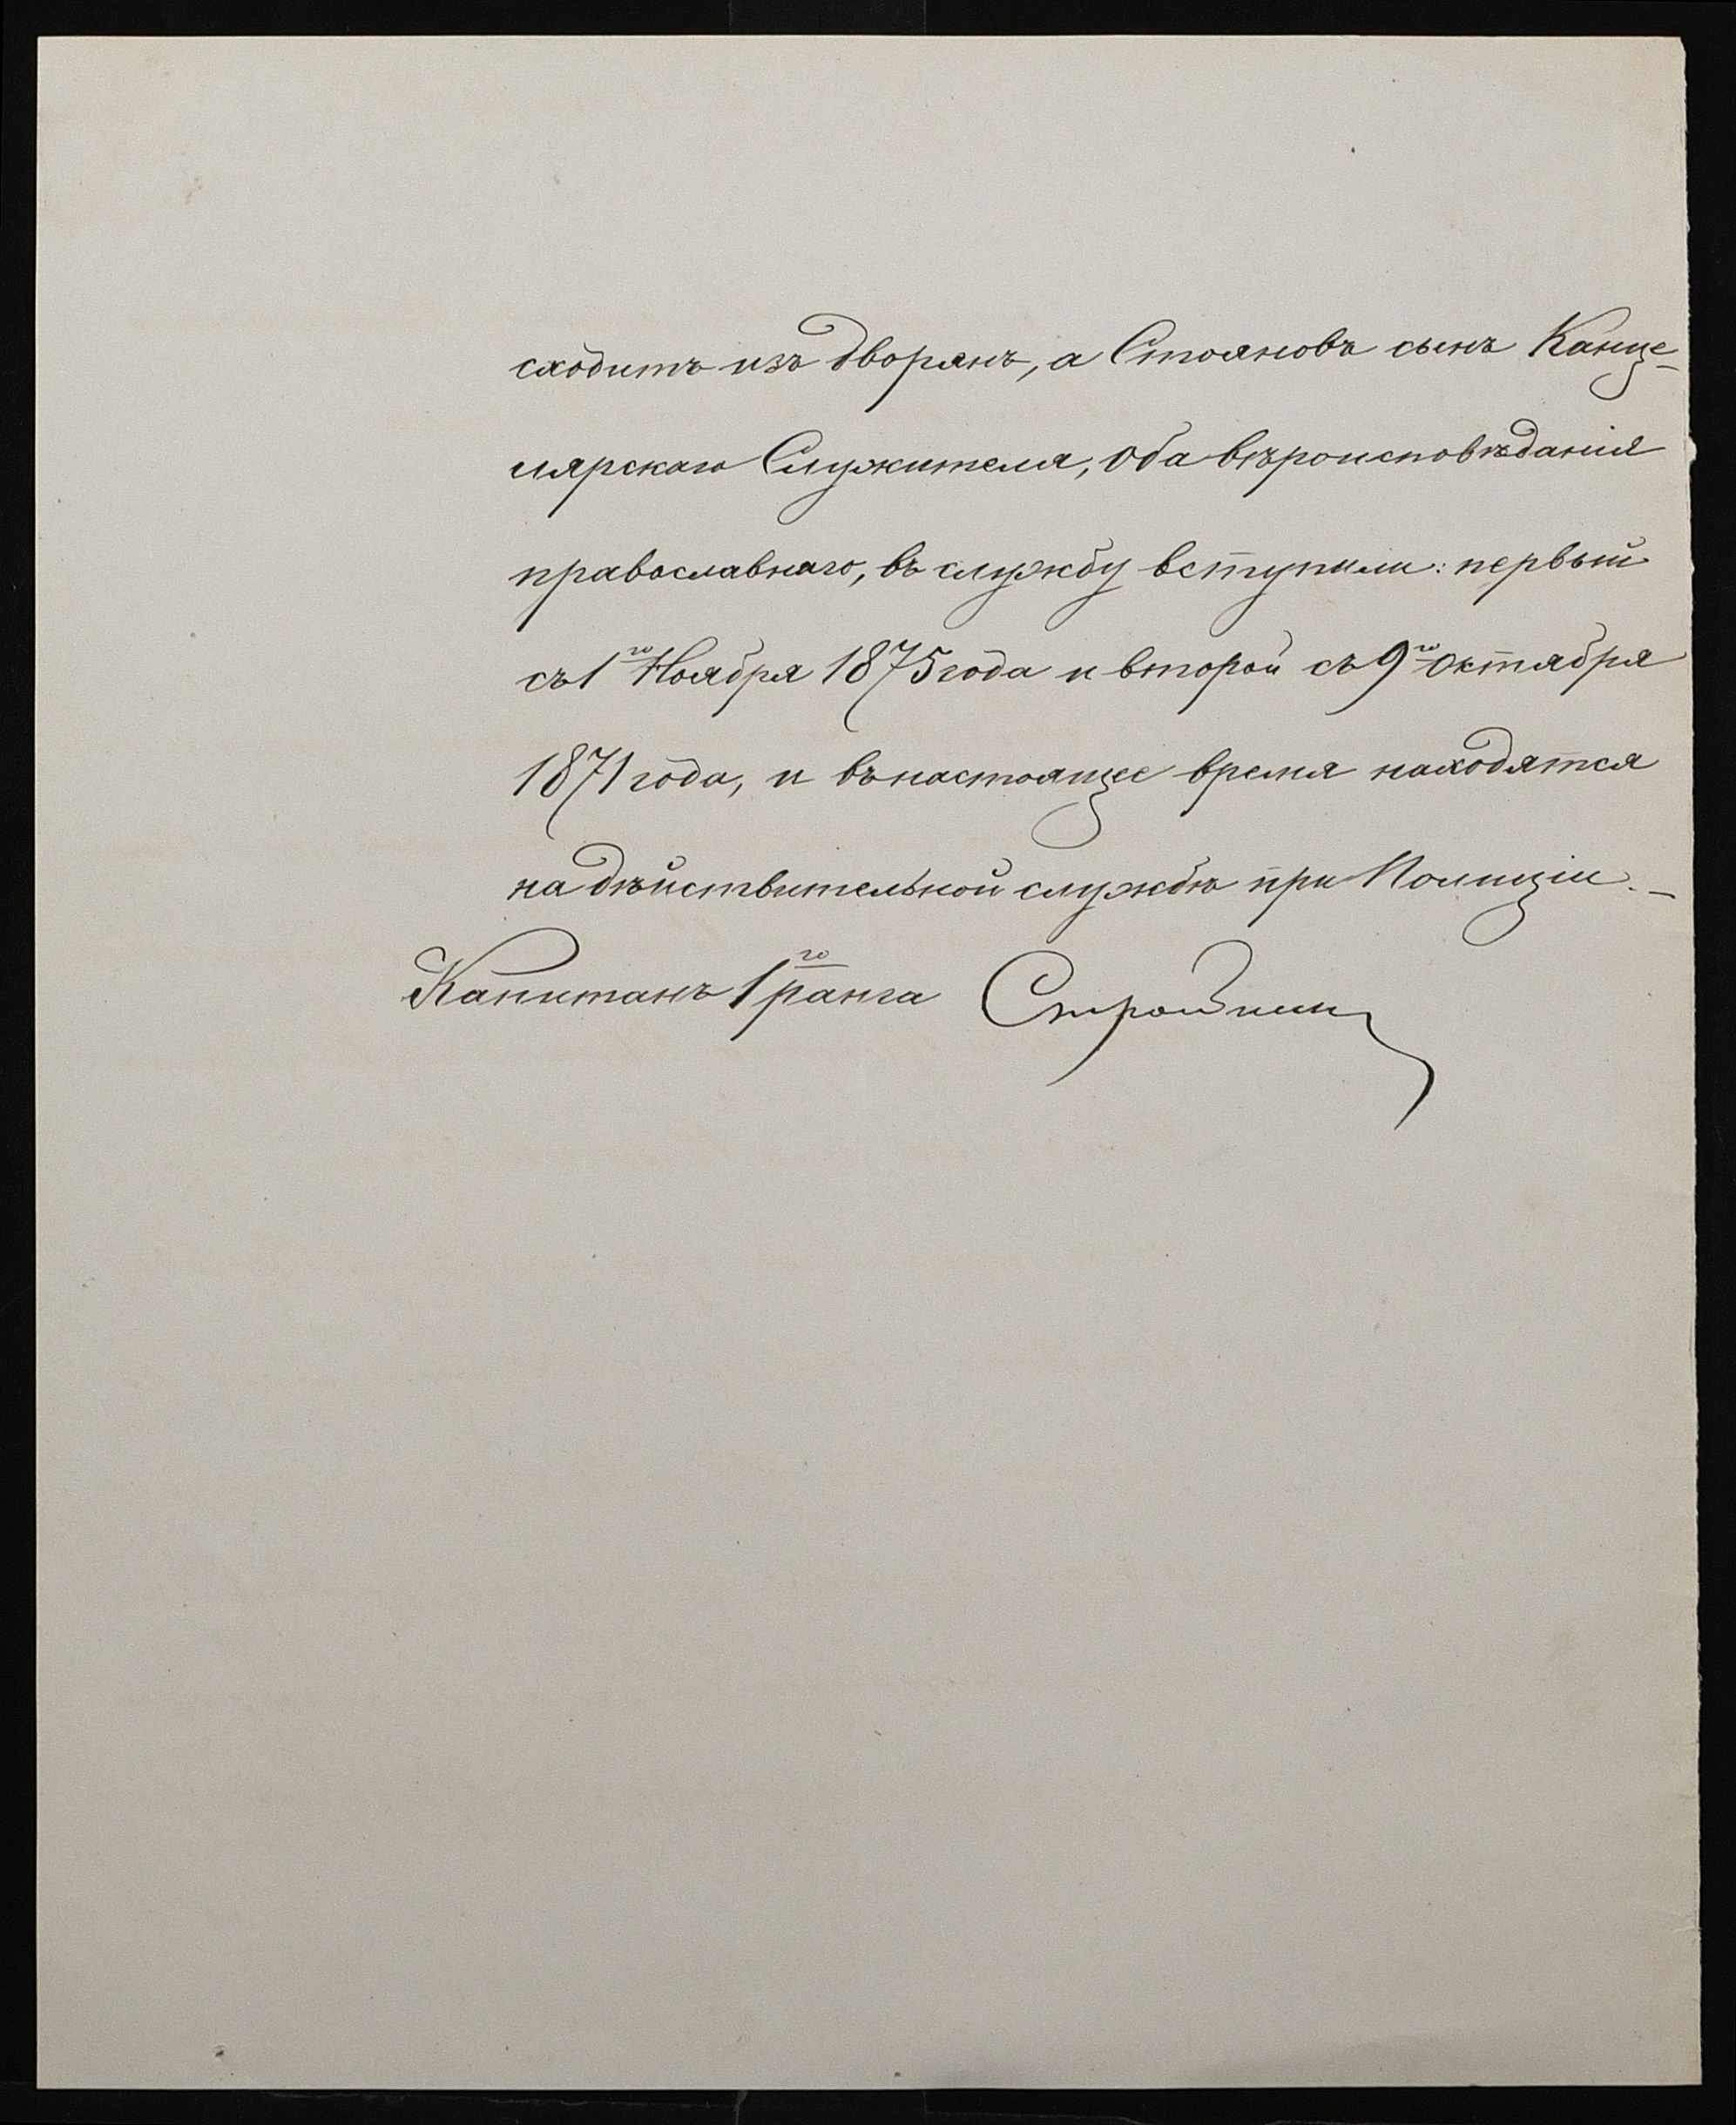 сходитъ изъ дворянъ, а Стояновъ сынъ Канце-
лярскаго Служителя, оба вѣроисповѣданія
православнаго, въ службу вступили: первый
съ 1го Ноября 1875 года и второй съ 9го Октября
1871 года, и въ настоящее время находятся
на дѣйствительной службѣ при Полиціи. —
Капитанъ 1го ранга